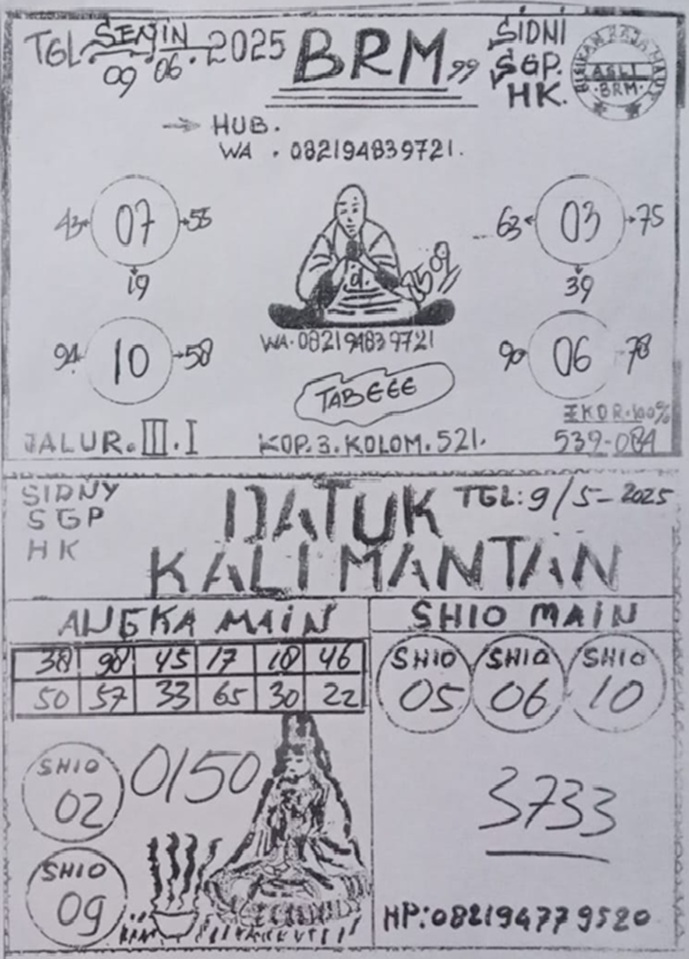 TGL. SENIN 09 06 . 2025
BRM 99
SIDNI
SGP.
HK.
ASLI
BRM
→ HUB.
WA . 082194839721.
43 07 55
19
63 03 75
39
94 10 58
90 06 78
WA. 082194839721
TABEEE
EKOR.100%
JALUR. III. I
KOP. 3. KOLOM. 521.
539-084
SIDNY
SGP
HK
DATUK
TGL: 9/5-2025
KALIMANTAN
ANGKA MAIN
SHIO MAIN
38 98 45 17 18 46
50 57 33 65 30 22
SHIO
05
SHIO
06
SHIO
10
SHIO
02
0150
3733
SHIO
09
HP: 082194779520